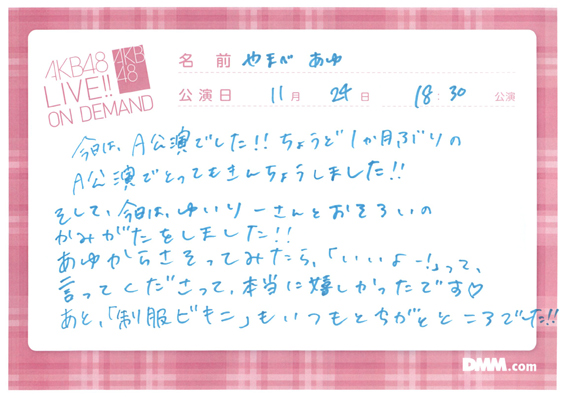 AKB48
LIVE!!
ON DEMAND
AKB
48
名前 やまべ あゆ
公演日 11月 24日 18:30 公演
今日は、A公演でした!! ちょうど1か月ぶりの
A公演でとってもきんちょうしました!!
そして、今日は、ゆいりーさんとおそろいの
かみがたをしました!!
あゆからさそってみたら、「いいよー!」って、
言ってくださって、本当に嬉しかったです♡
あと、「制服ビキニ」もいつもとちがうところでした!!
DMM.com